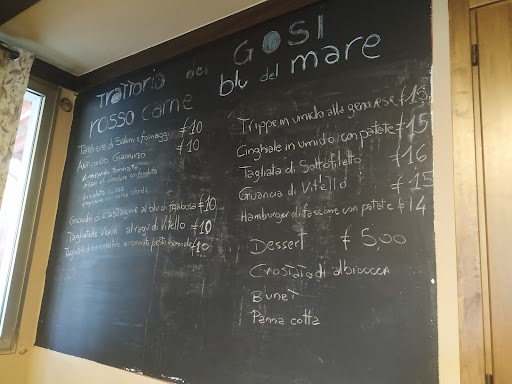 Trattoria dei GOSI
rosso carne blu del mare
Tagliere di Salumi e formaggi £10
Antipasto Giannino £10
Gnocchi di castagne al blu di frabosa £10
Tagliatelle Verdi al ragù di Vitello £10
£10
Trippe in umido alla genovese £15
Cinghiale in umido con patate £15
Tagliata di Sottofiletto £16
Guancia di Vitello £15
Hamburger di fassone con patate £14
Dessert £5,00
Crostata di albicocca
Bunet
Panna cotta